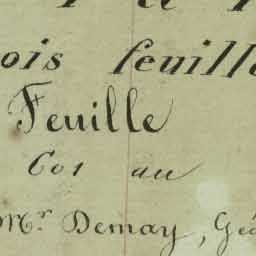 ois feuille
Feuille
601 au
Mr. Demay, Géo